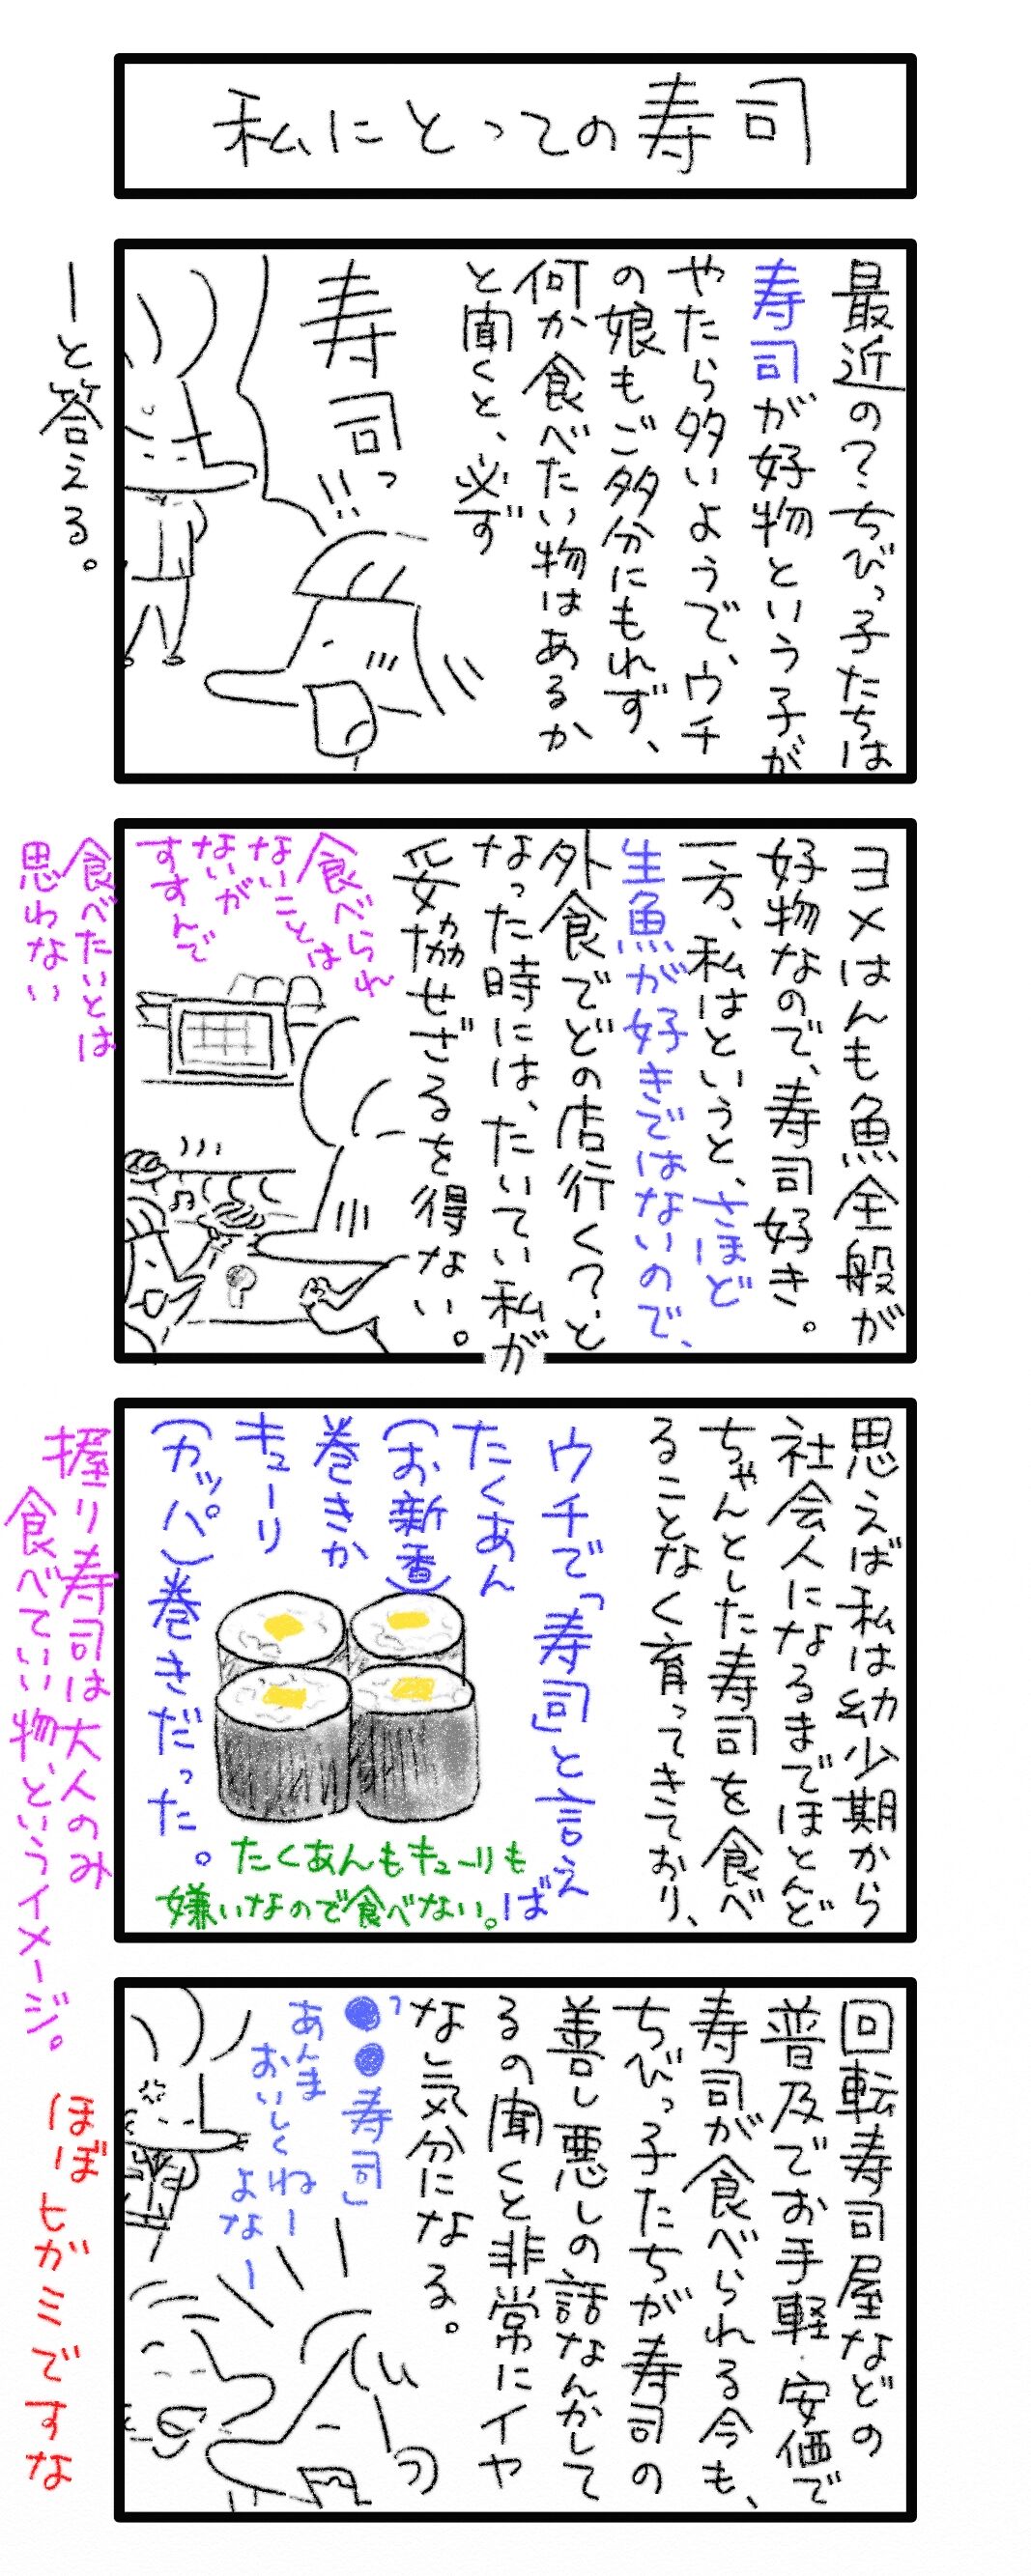 私にとっての寿司
最近の?ちびっ子たちは
寿司が好物という子が
やたら多いようで、ウチ
の娘もご多分にもれず、
何か食べたい物はあるか
と聞くと、必ず
寿司っ
!!
ーと答える。
ヨメはんも魚全般が
好物なので、寿司好き。
一方、私はというと、さほど
生魚が好きではないので、
外食でどの店行く?と
なった時には、たいてい私が
妥協せざるを得ない。
食べられ
ないことは
ないが
すすんで
食べたいとは
思わない
思えば私は幼少期から
社会人になるまでほとんど
ちゃんとした寿司を食べ
ることなく育ってきており、
ウチで「寿司」と言えば
たくあん
(お新香)
巻きか
キューリ
(カッパ)巻きだった。
たくあんもキューリも
嫌いなので食べない。
握り寿司は大人のみ
食べていい物、というイメージ。
回転寿司屋などの
普及でお手軽・安価で
寿司が食べられる今も、
ちびっ子たちが寿司の
善し悪しの話なんかして
るの聞くと非常にイヤ
な気分になる。
「●●寿司」
あんま
おいしくねー
よなー
ほぼヒガミですな